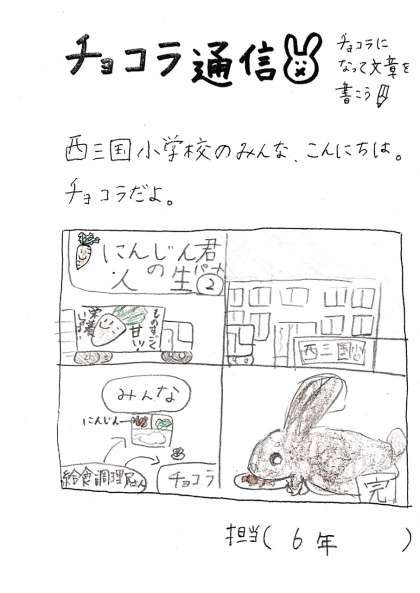 チョコラ通信
チョコラに
なって文章を
書こう
西三国小学校のみんな、こんにちは。
チョコラだよ。
にんじん君
の
人生
パート
②
栄養
いっぱい
ものすごく
甘い!
西三国小
みんな
にんじん
給食調理員さん
チョコラ
完
担当(6年)